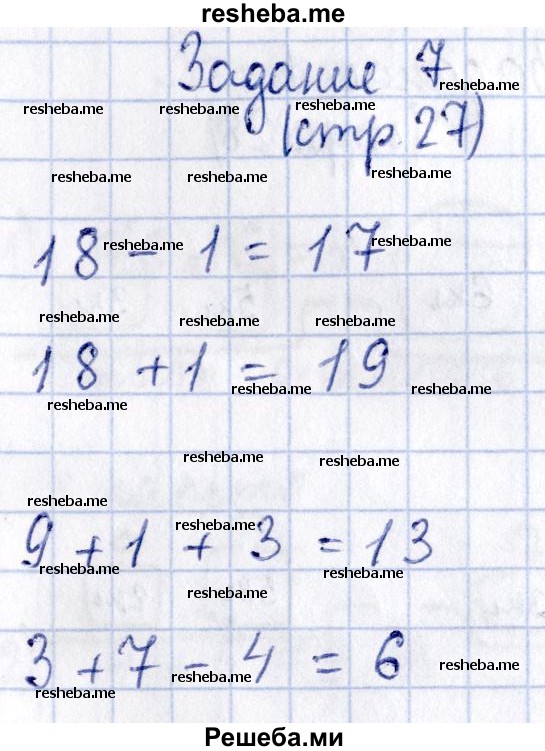 resheba.me
Задание 7
resheba.me
resheba.me resheba.me resheba.me
(стр. 27)
resheba.me resheba.me resheba.me
18 - 1 = 17
resheba.me resheba.me
resheba.me resheba.me resheba.me
18 + 1 = 19
resheba.me resheba.me
resheba.me
resheba.me resheba.me
resheba.me
resheba.me
9 + 1 + 3 = 13
resheba.me resheba.me
resheba.me
3 + 7 - 4 = 6
resheba.me resheba.me
resheba.me
Решеба.ми